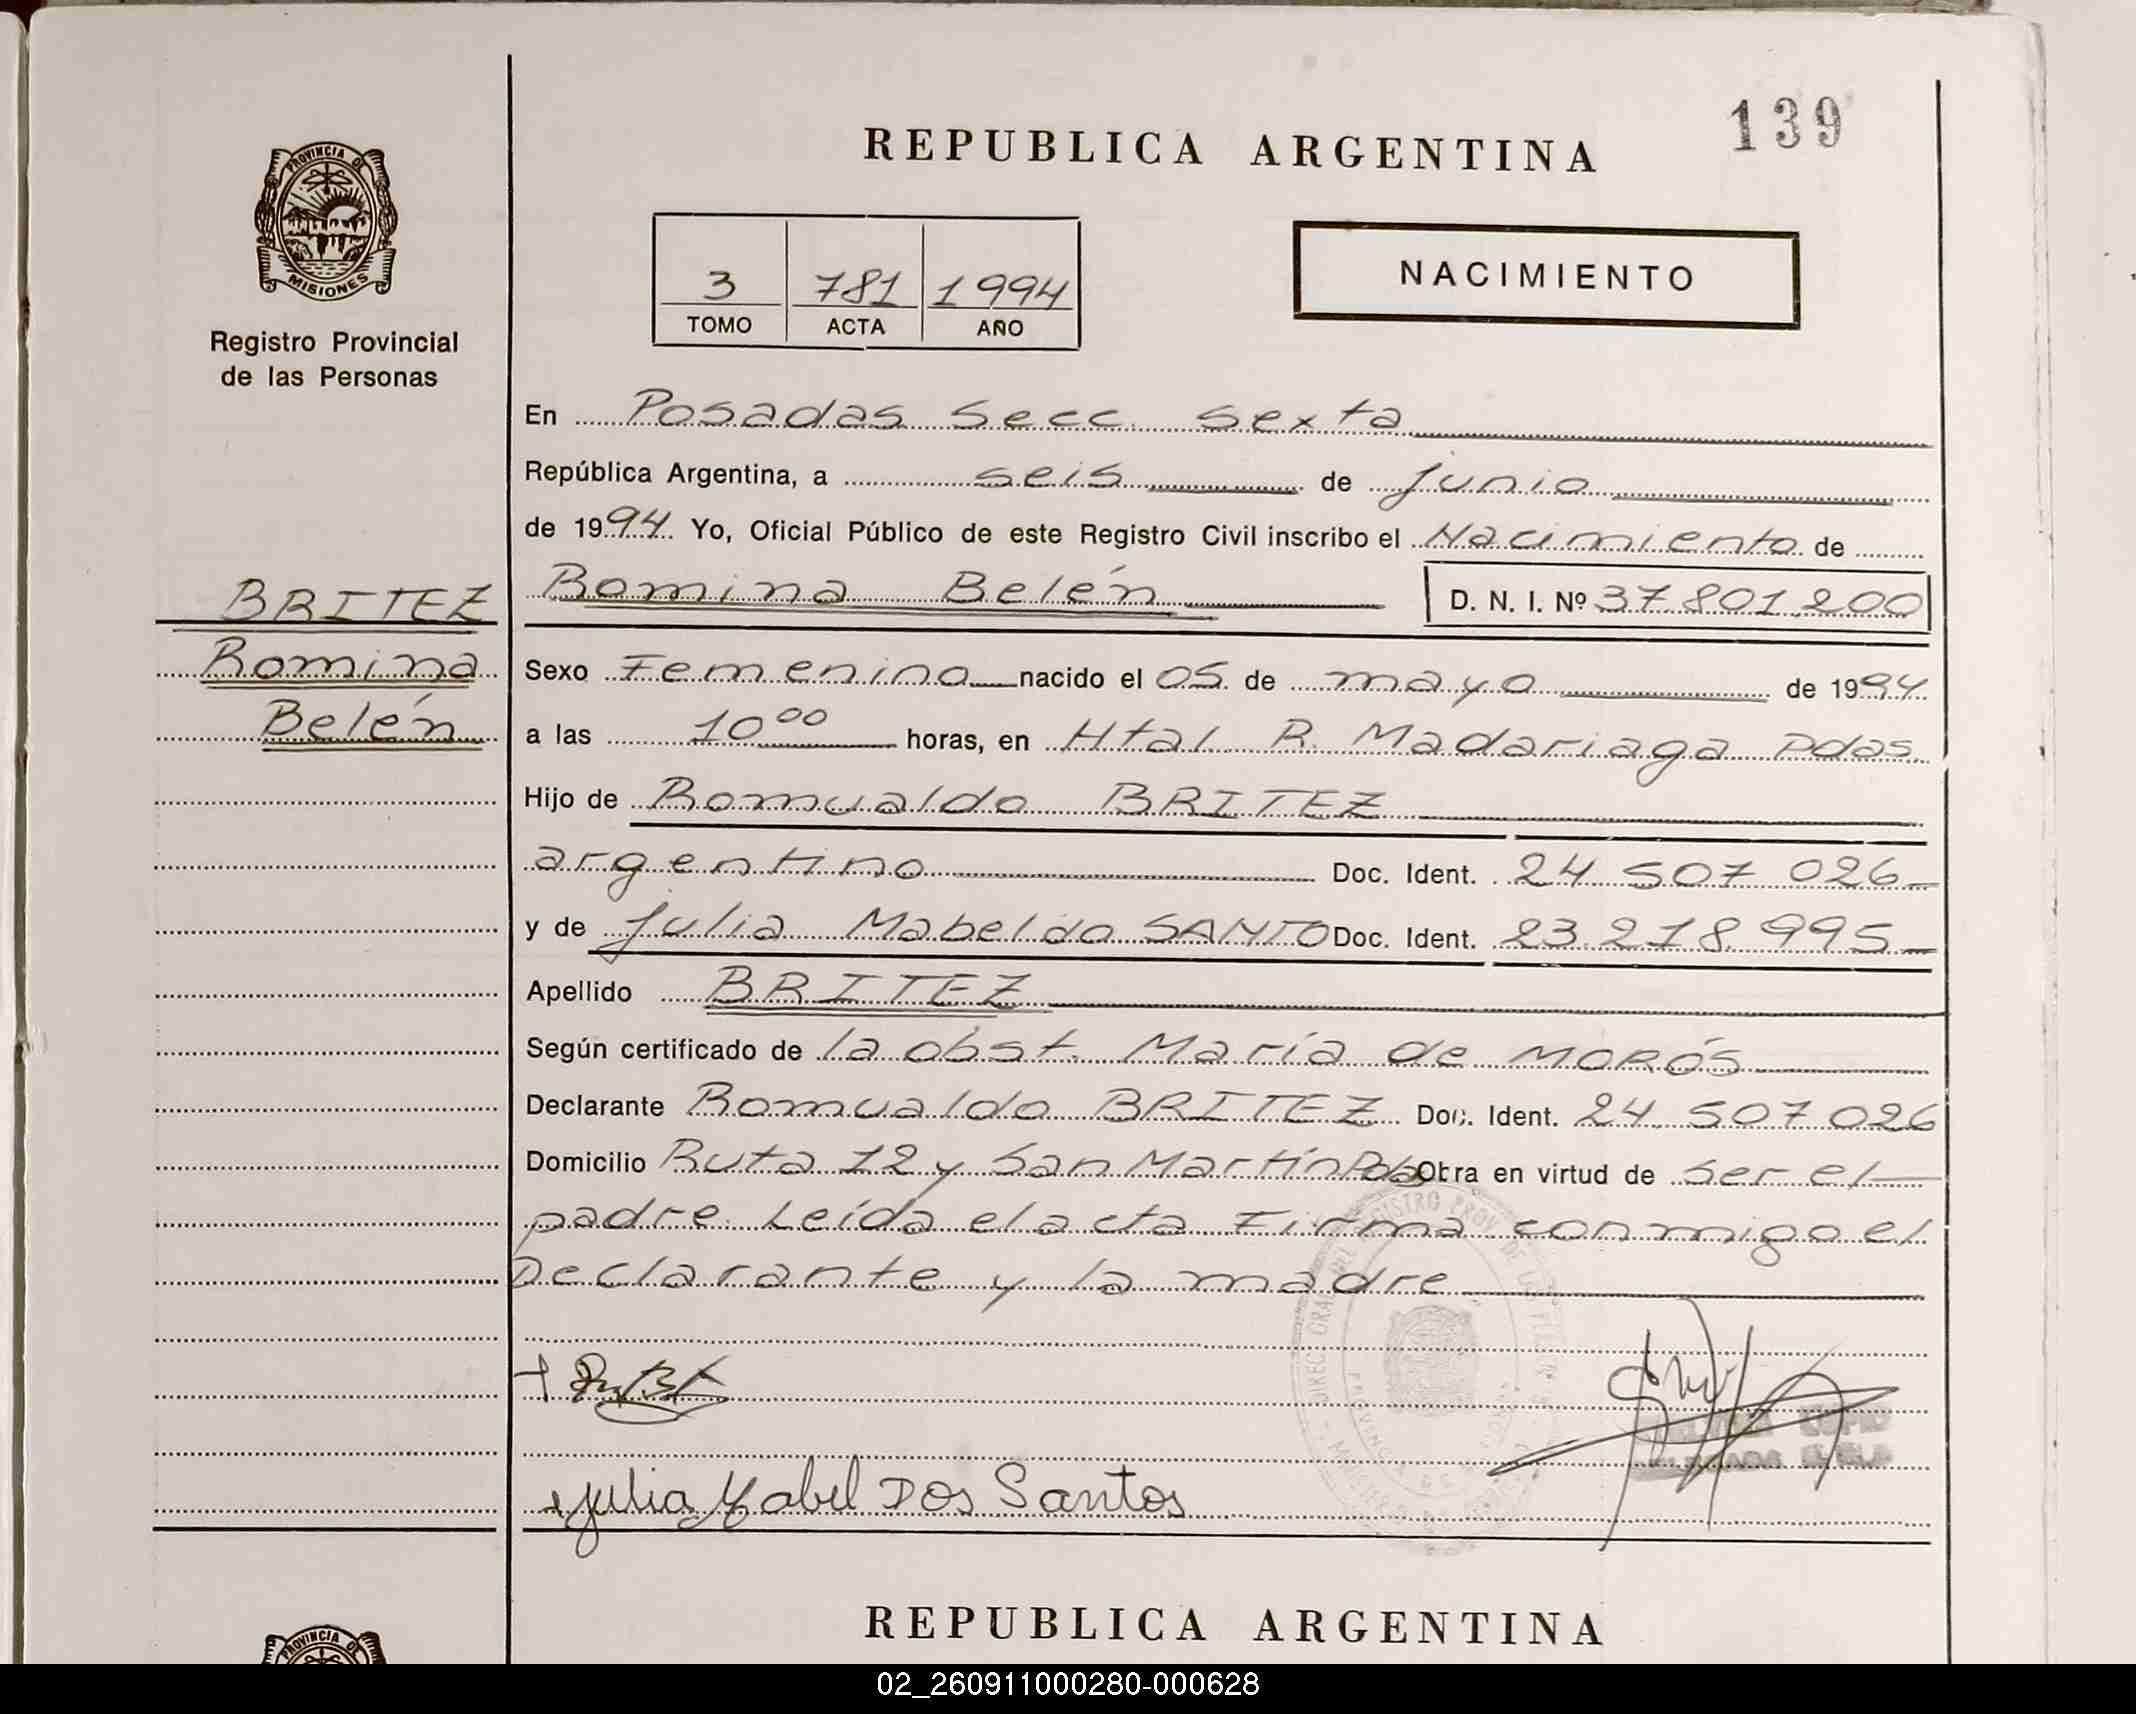 139
REPUBLICA ARGENTINA
PROVINCIA DE
MISIONES
Registro Provincial
de las Personas
3 781 1994
TOMO ACTA AÑO
NACIMIENTO
En Posadas Secc. Sexta
República Argentina, a seis de Junio
de 1994. Yo, Oficial Público de este Registro Civil inscribo el Nacimiento de
BRITEZ
Romina
Belén
Romina Belén D. N. I. Nº 37.801.200
Sexo Femenino nacido el 05 de mayo de 1994
a las 10 00 horas, en Htal R. Madariaga Pdas.
Hijo de Romualdo BRITEZ
argentino Doc. Ident. 24 507 026
y de Julia Mabel do SANTO Doc. Ident. 23.218.995
Apellido BRITEZ
Según certificado de la obst. María de MORÓS
Declarante Romualdo BRITEZ Doc. Ident. 24.507026
Domicilio Ruta 12 y San Martín Pdas Obra en virtud de ser el
padre. Leída el acta Firma conmigo el
Declarante y la madre
Julia Mabel Dos Santos
REPUBLICA ARGENTINA
PROVINCIA DE
02_260911000280-000628